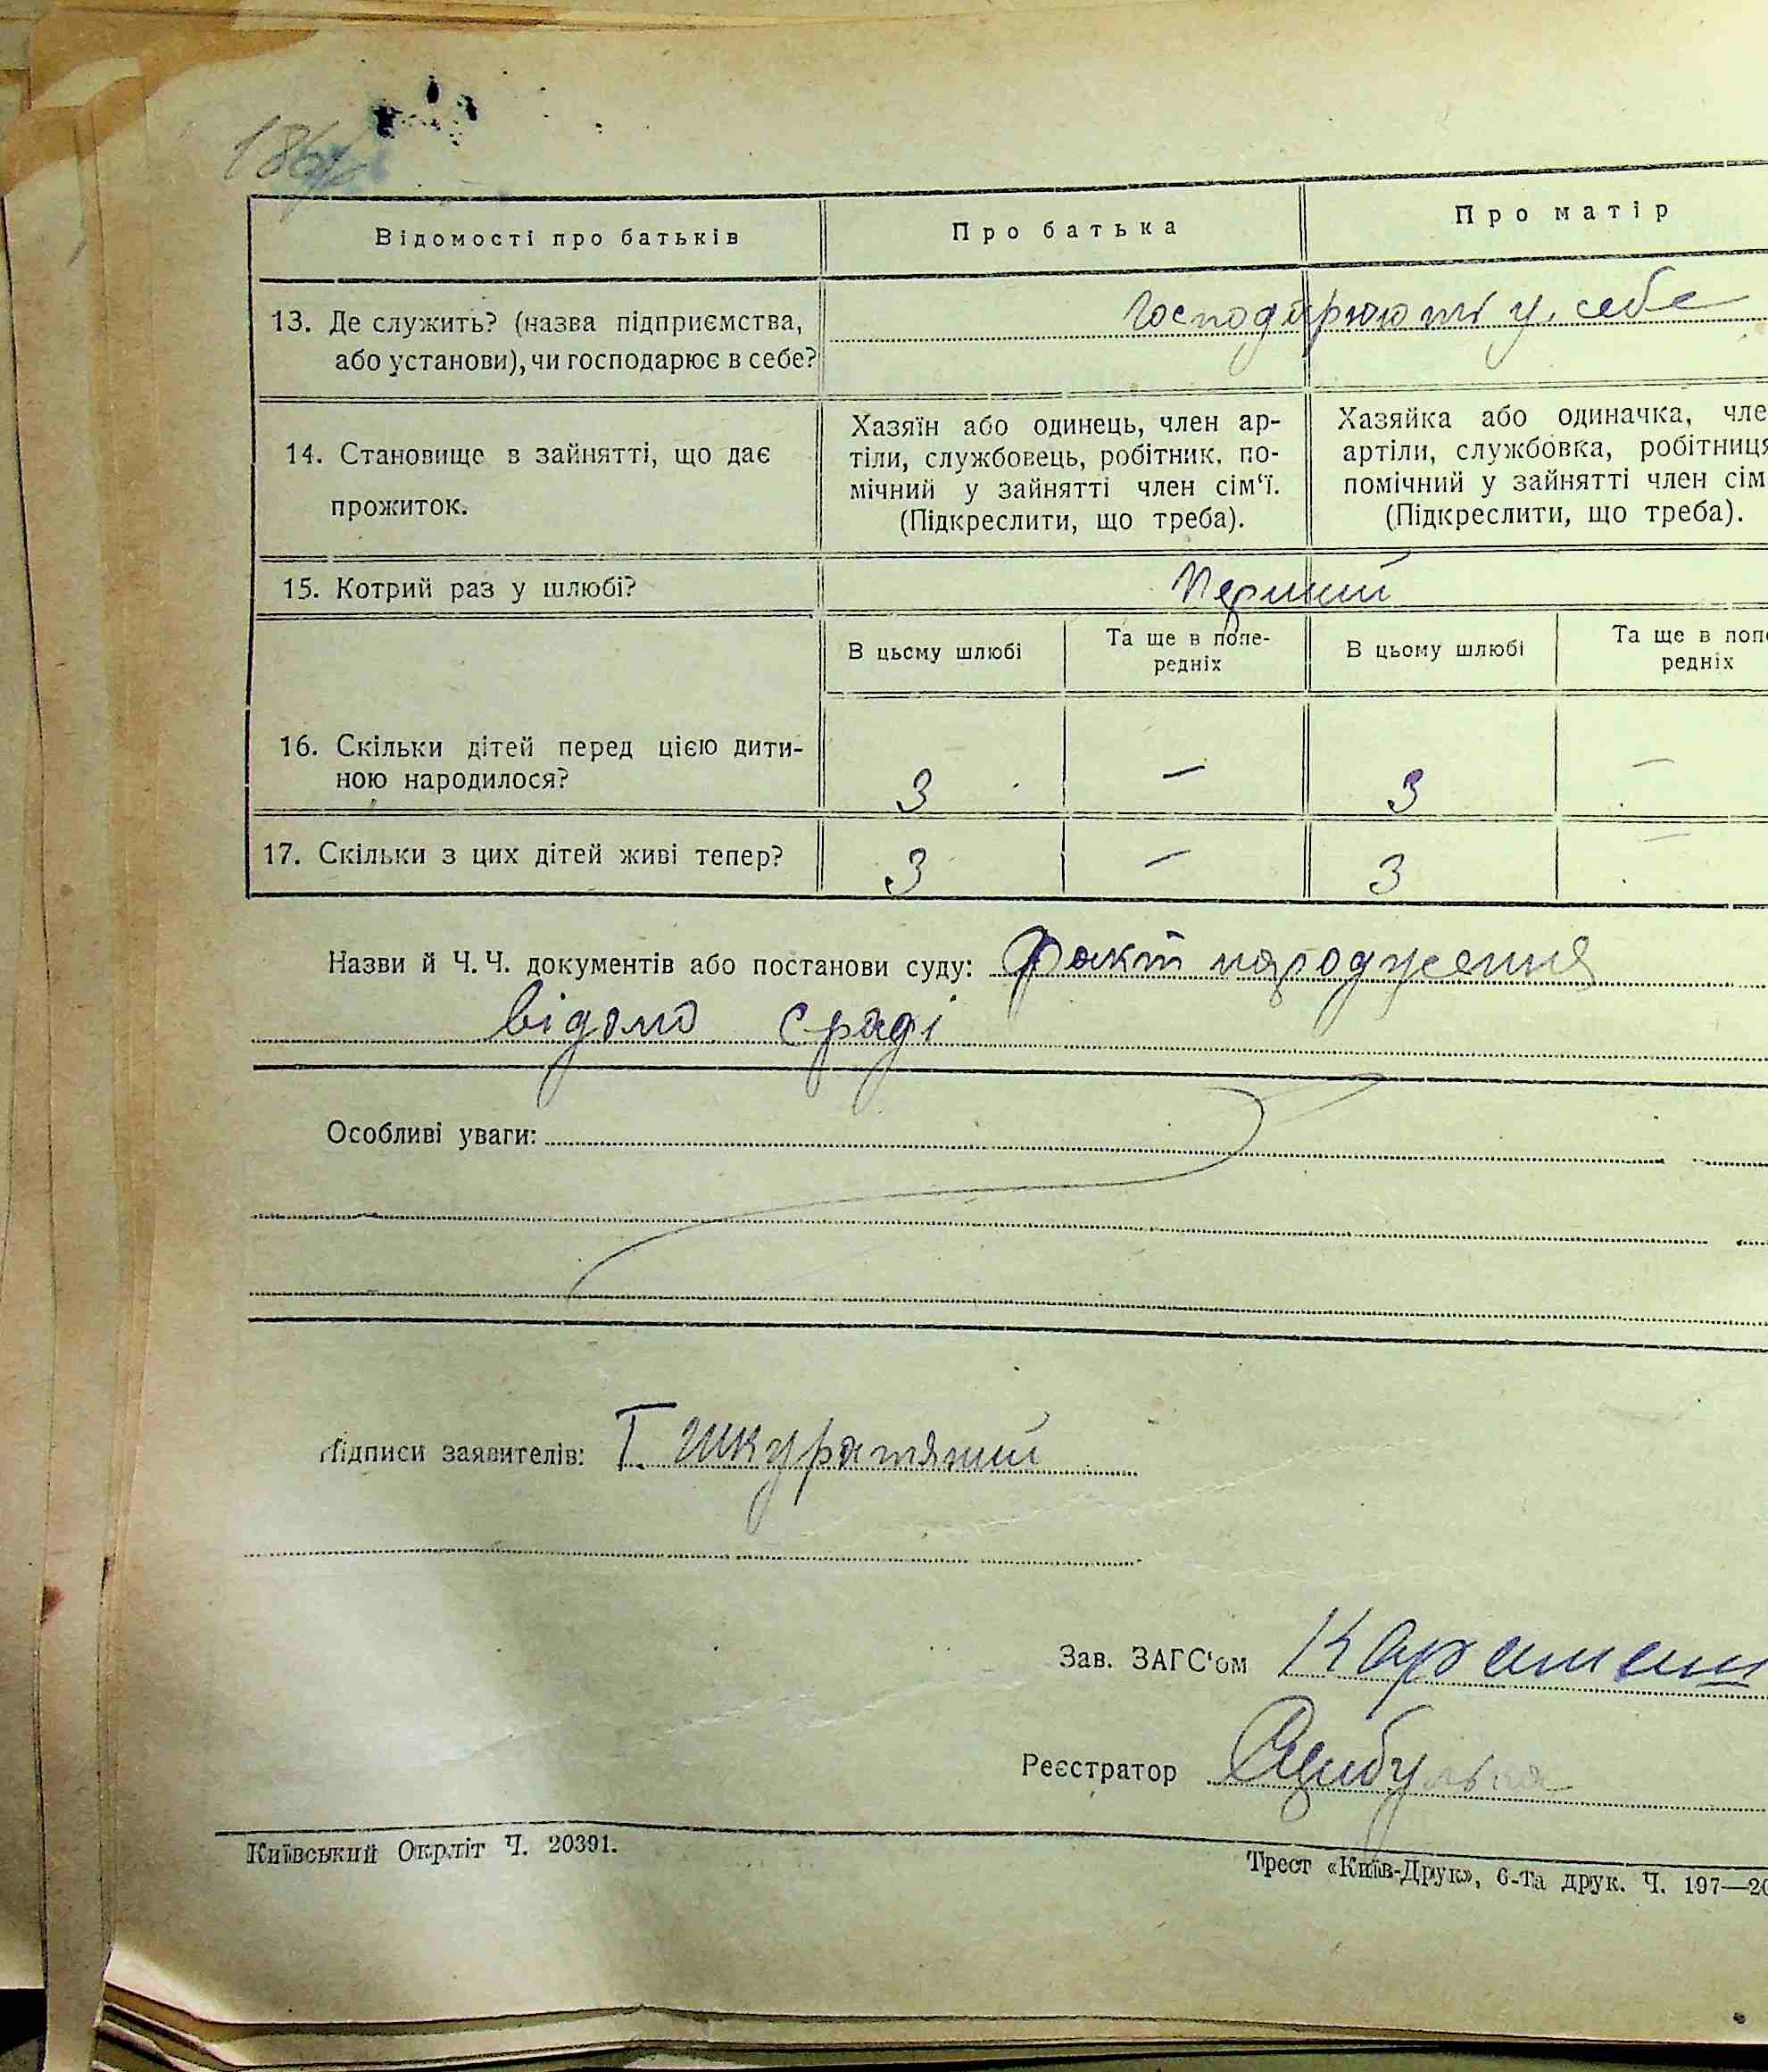 186
Відомості про батьків
Про батька
Про матір
13. Де служить? (назва підприємства,
або установи), чи господарює в себе?
Господарюють у себе
14. Становище в зайнятті, що дає
прожиток.
Хазяїн або одинець, член ар-
тіли, службовець, робітник, по-
мічний у зайнятті член сім'ї.
(Підкреслити, що треба).
Хазяйка або одиначка, чле
артіли, службовка, робітниця
помічний у зайнятті член сім
(Підкреслити, що треба).
15. Котрий раз у шлюбі?
Перший
В цьому шлюбі
Та ще в попе-
редніх
В цьому шлюбі
Та ще в попе
редніх
16. Скільки дітей перед цією дити-
ною народилося?
3 — 3 —
17. Скільки з цих дітей живі тепер?
3 — 3 —
Назви й Ч. Ч. документів або постанови суду: Факт народження
відомо с раді
Особливі уваги:
Підписи заявителів: Г. Шкуратяний
Зав. ЗАГС'ом
Реєстратор Цибулька
Київський Окрліт Ч. 20391.
Трест «Київ-Друк», 6-та друк. Ч. 197—20